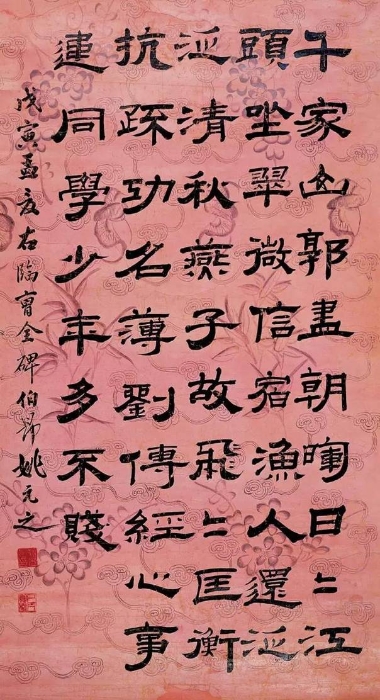 千家山郭盡朝暉日〻江
頭坐翠微信宿漁人還泛
泛清秋燕子故飛〻匡衡
抗疏功名薄劉傳經心事
違同學少年多不賤
戊寅孟夏右臨曹全碑伯昂姚元之